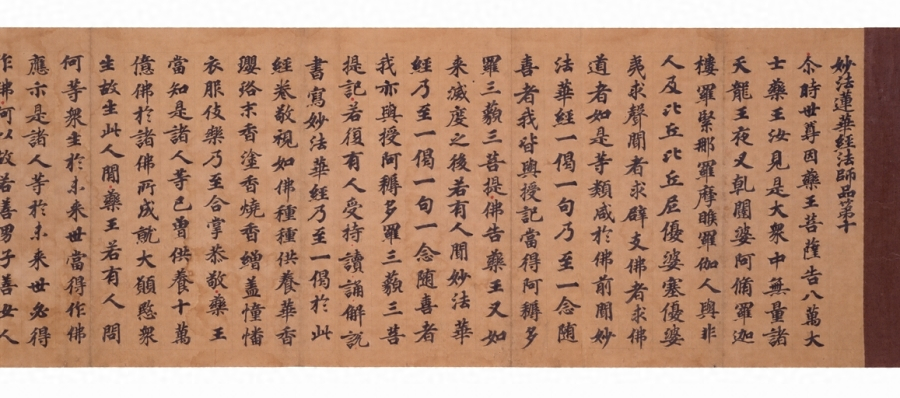 妙法蓮華經法師品第十
尒時世尊因藥王菩薩告八萬大
士藥王汝見是大衆中無量諸
天龍王夜叉乹闥婆阿脩羅迦
樓羅緊那羅摩睺羅伽人與非
人及比丘比丘尼優婆塞優婆
夷求聲聞者求辟支佛者求佛
道者如是等類咸於佛前聞妙
法華經一偈一句乃至一念随
喜者我皆與授記當得阿耨多
羅三藐三菩提佛告藥王又如
来滅度之後若有人聞妙法華
經乃至一偈一句一念随喜者
我亦與授阿耨多羅三藐三菩
提記若復有人受持讀誦解說
書寫妙法華經乃至一偈於此
經卷敬視如佛種種供養華香
瓔珞末香塗香燒香繒蓋憧幡
衣服伎樂乃至合掌恭敬藥王
當知是諸人等已曾供養十萬
億佛於諸佛所成就大願愍衆
生故生此人間藥王若有人問
何等衆生於未来世當得作佛
應示是諸人等於未来世必得
作佛何以故若善男子善女人